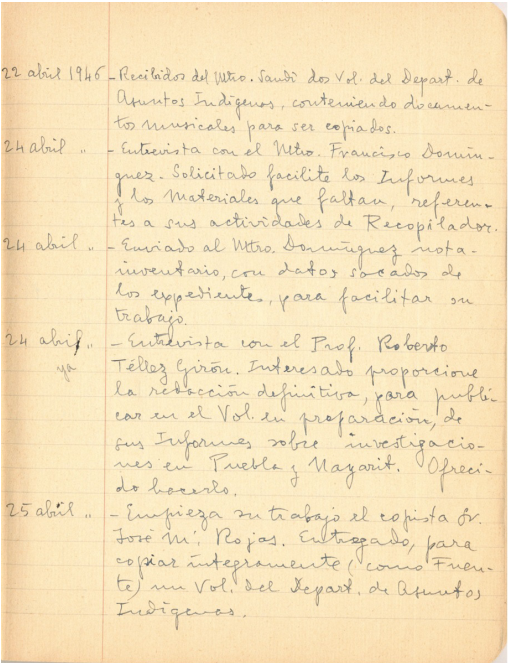 22 abril 1946 - Recibidos del Mtro. Sandi dos Vol. del Depart. de
Asuntos Indígenas, conteniendo documen-
tos musicales para ser copiados.
24 abril " - Entrevista con el Mtro. Francisco Domín-
guez. Solicitado facilite los Informes
y los Materiales que faltan, referen-
tes a sus actividades de Recopilador.
24 abril " - Enviado al Mtro. Domínguez nota-
inventario, con datos sacados de
los expedientes, para facilitar su
trabajo.
24 abril " - Entrevista con el Prof. Roberto
ya Téllez Girón. Interesado proporcione
la redacción definitiva, para publi-
car en el Vol. en preparación, de
sus Informes sobre investigacio-
nes en Puebla y Nayarit. Ofreci-
do hacerlo.
25 abril " - Empieza su trabajo el copista Sr.
José M. Rojas. Entregado, para
copiar íntegramente (como Fuen-
te) un Vol. del Depart. de Asuntos
Indígenas.